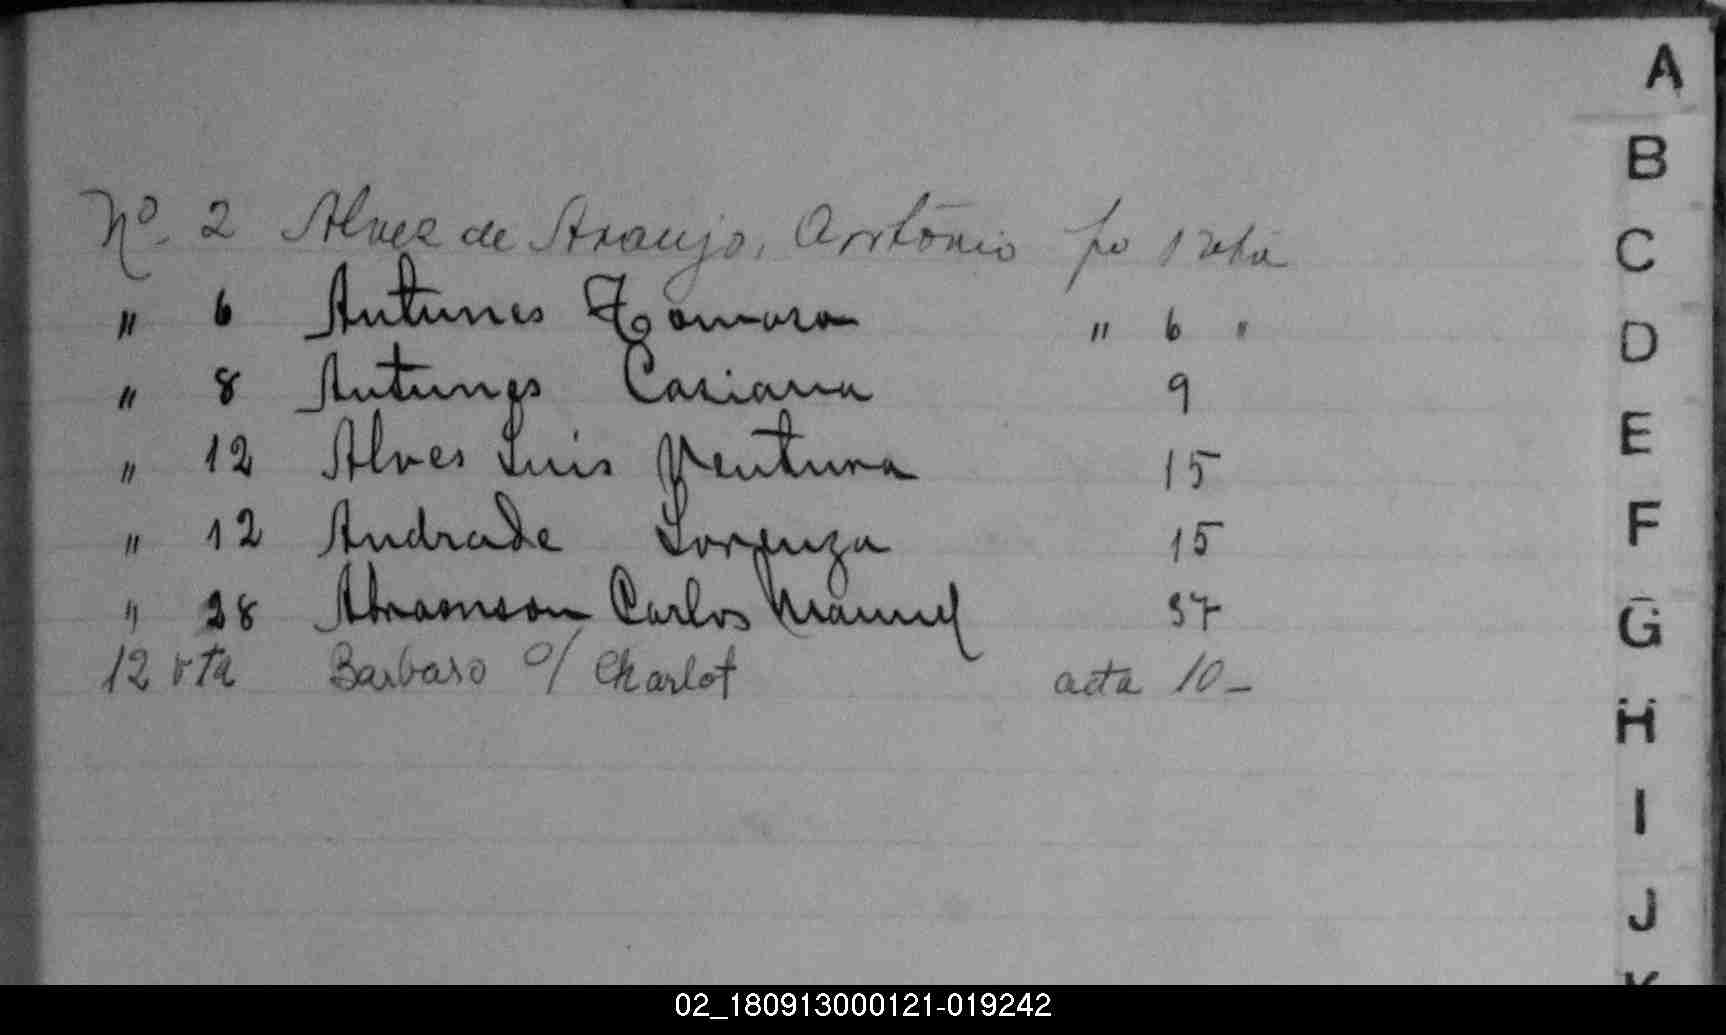 Nº. 2 Alvez de Araujo, Antônio fo 1 vta
" 6 Antunes Tomasa " 6 "
" 8 Antunes Casiana 9
" 12 Alves Luis Ventura 15
" 12 Andrade Lorenza 15
" 28 Abramson Carlos Manuel 37
12 vta Barbaso o/ Charlot acta 10_
A
B
C
D
E
F
G
H
I
J
K
02_180913000121-019242